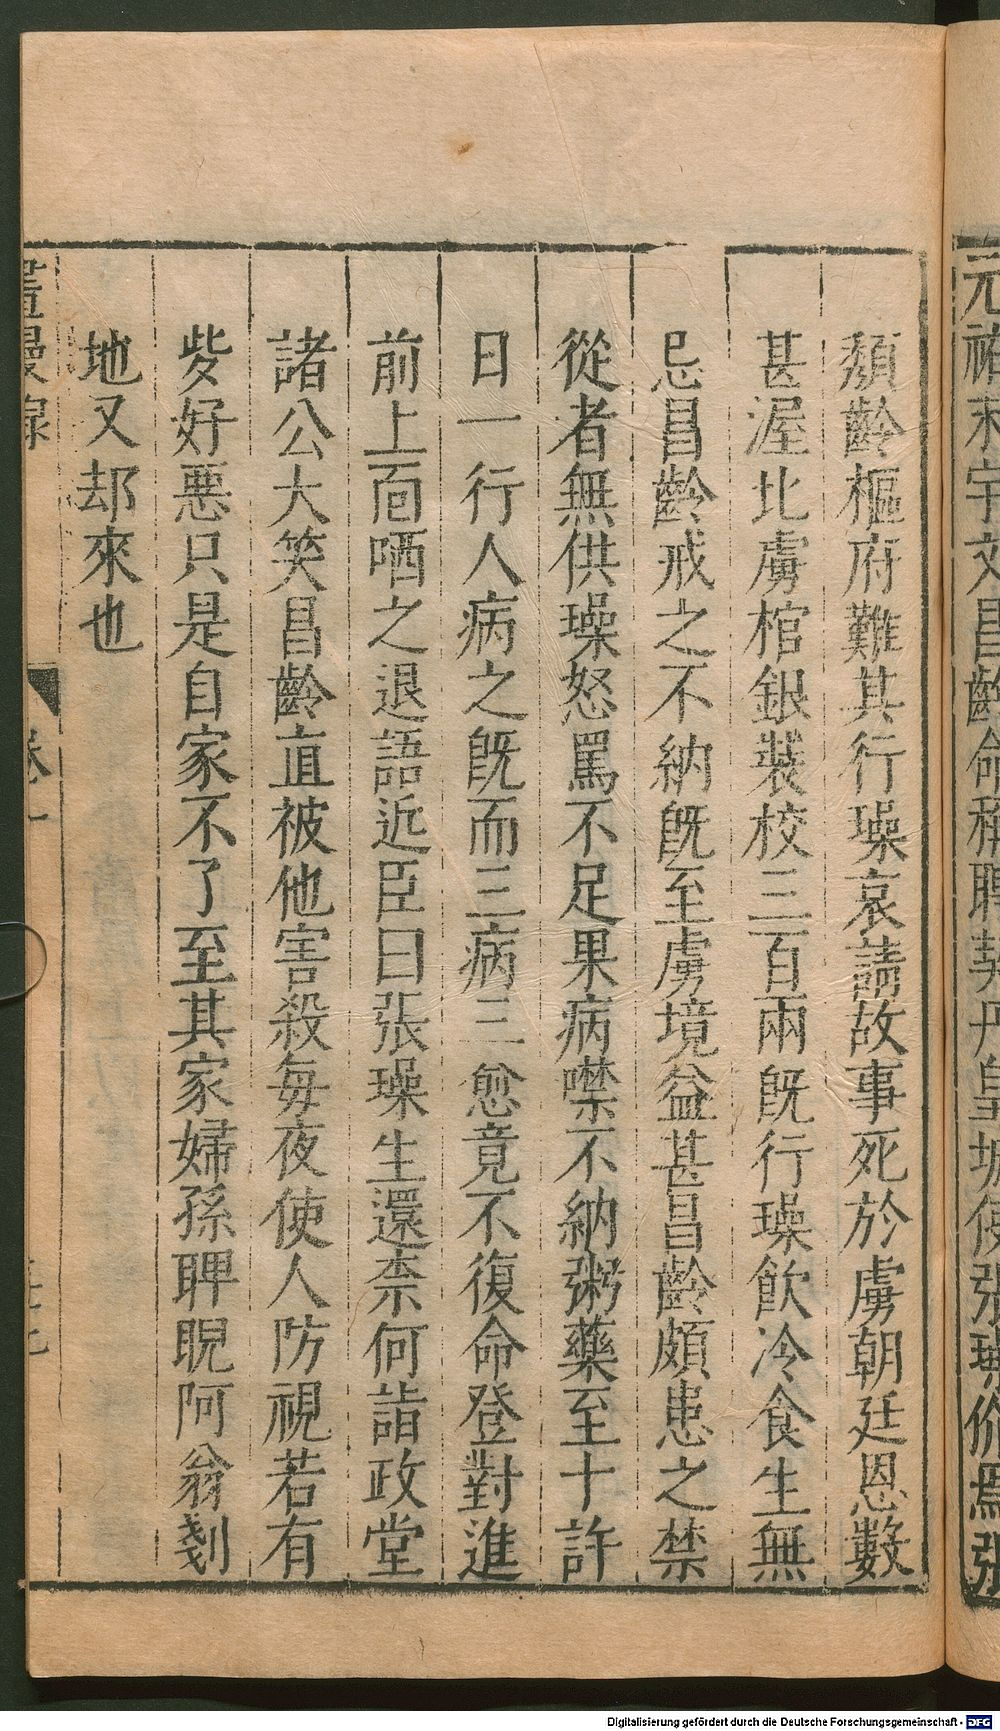 元祐末宇文昌齡命稱聘契丹皇城使張璪价焉張
頽齡樞府難其行璪哀請故事死於虜朝廷恩數
甚渥北虜棺銀裝校三百兩既行璪飲冷食生無
忌昌齡戒之不納既至虜境益甚昌齡頗患之禁
從者無供璪怒罵不足果病噤不納粥藥至十許
日一行人病之既而三病三愈竟不復命登對進
前上面哂之退語近臣曰張璪生還柰何詣政堂
諸公大笑昌齡直被他害殺每夜使人防視若有
些好惡只是自家不了至其家婦孫睥睨阿翁剗
地又却來也
卷一
Digitalisierung gefördert durch die Deutsche Forschungsgemeinschaft - DFG